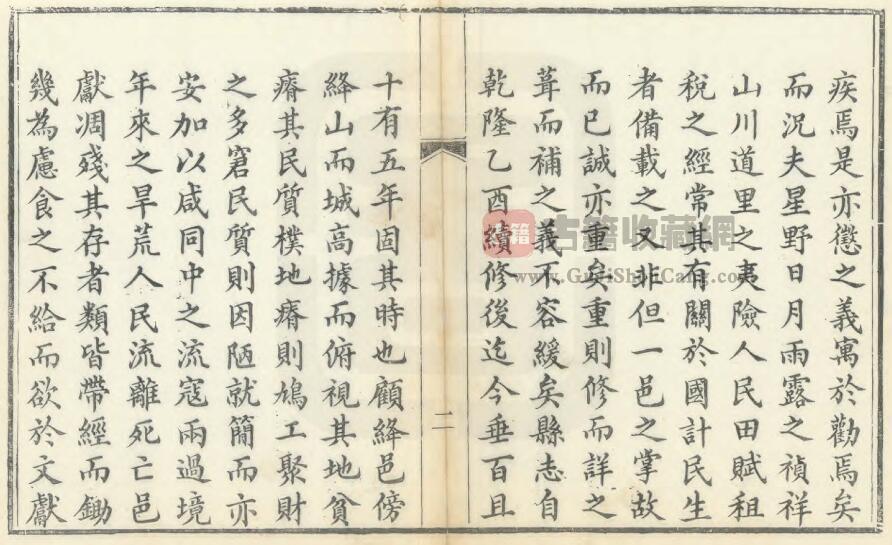 疾焉是亦懲之義寓於勸焉矣
而況夫星野日月雨露之禎祥
山川道里之夷險人民田賦租
稅之經常其有關於國計民生
者備載之又非但一邑之掌故
而已誠亦重矣重則修而詳之
葺而補之義不容緩矣縣志自
乾隆乙酉續修後迄今垂百且
二
十有五年固其時也顧絳邑傍
絳山而城高據而俯視其地貧
瘠其民質樸地瘠則鳩工聚財
之多窘民質則因陋就簡而亦
安加以咸同中之流寇兩過境
年來之旱荒人民流離死亡邑
獻凋殘其存者類皆帶經而鋤
幾為慮食之不給而欲於文獻
古籍
古籍收藏網
www.GujiShouCang.com